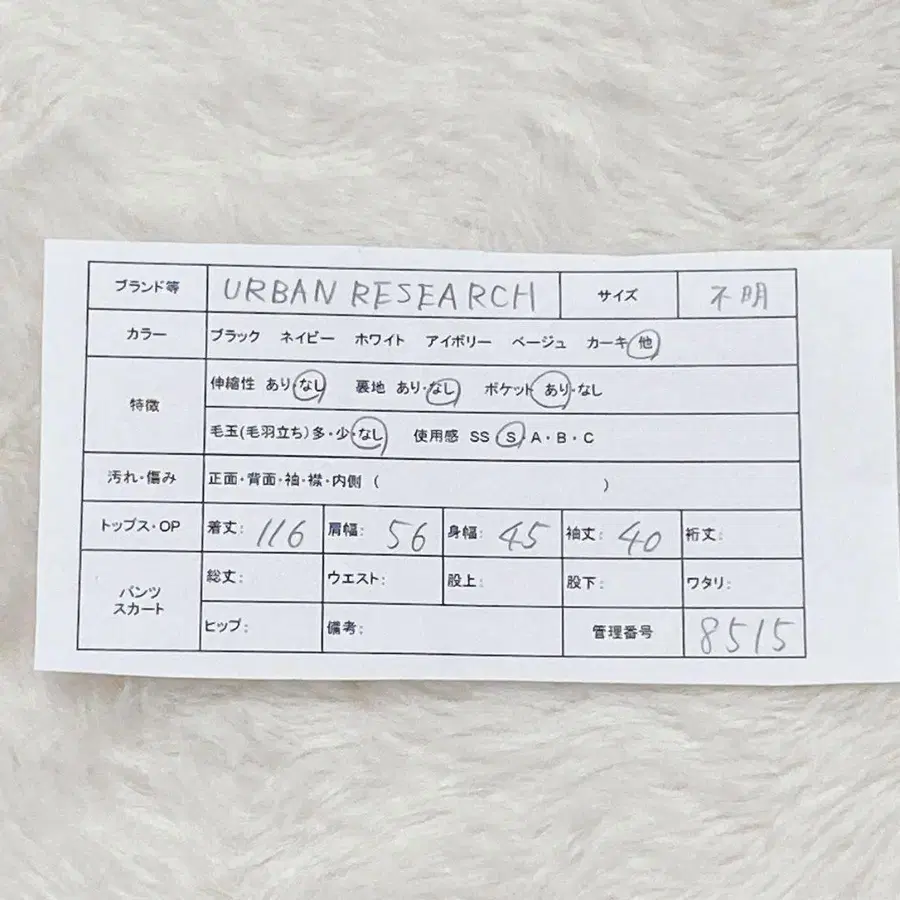 ブランド等 URBAN RESEARCH サイズ 不明
カラー ブラック ネイビー ホワイト アイボリー ベージュ カーキ 他
特徴 伸縮性 あり・なし 裏地 あり・なし ポケット あり・なし
毛玉(毛羽立ち)多・少・なし 使用感 SS・S・A・B・C
汚れ・傷み 正面・背面・袖・襟・内側 ( )
トップス・OP 着丈: 116 肩幅: 56 身幅: 45 袖丈: 40 裄丈:
パンツ スカート 総丈: ウエスト: 股上: 股下: ワタリ:
ヒップ: 備考: 管理番号 8515